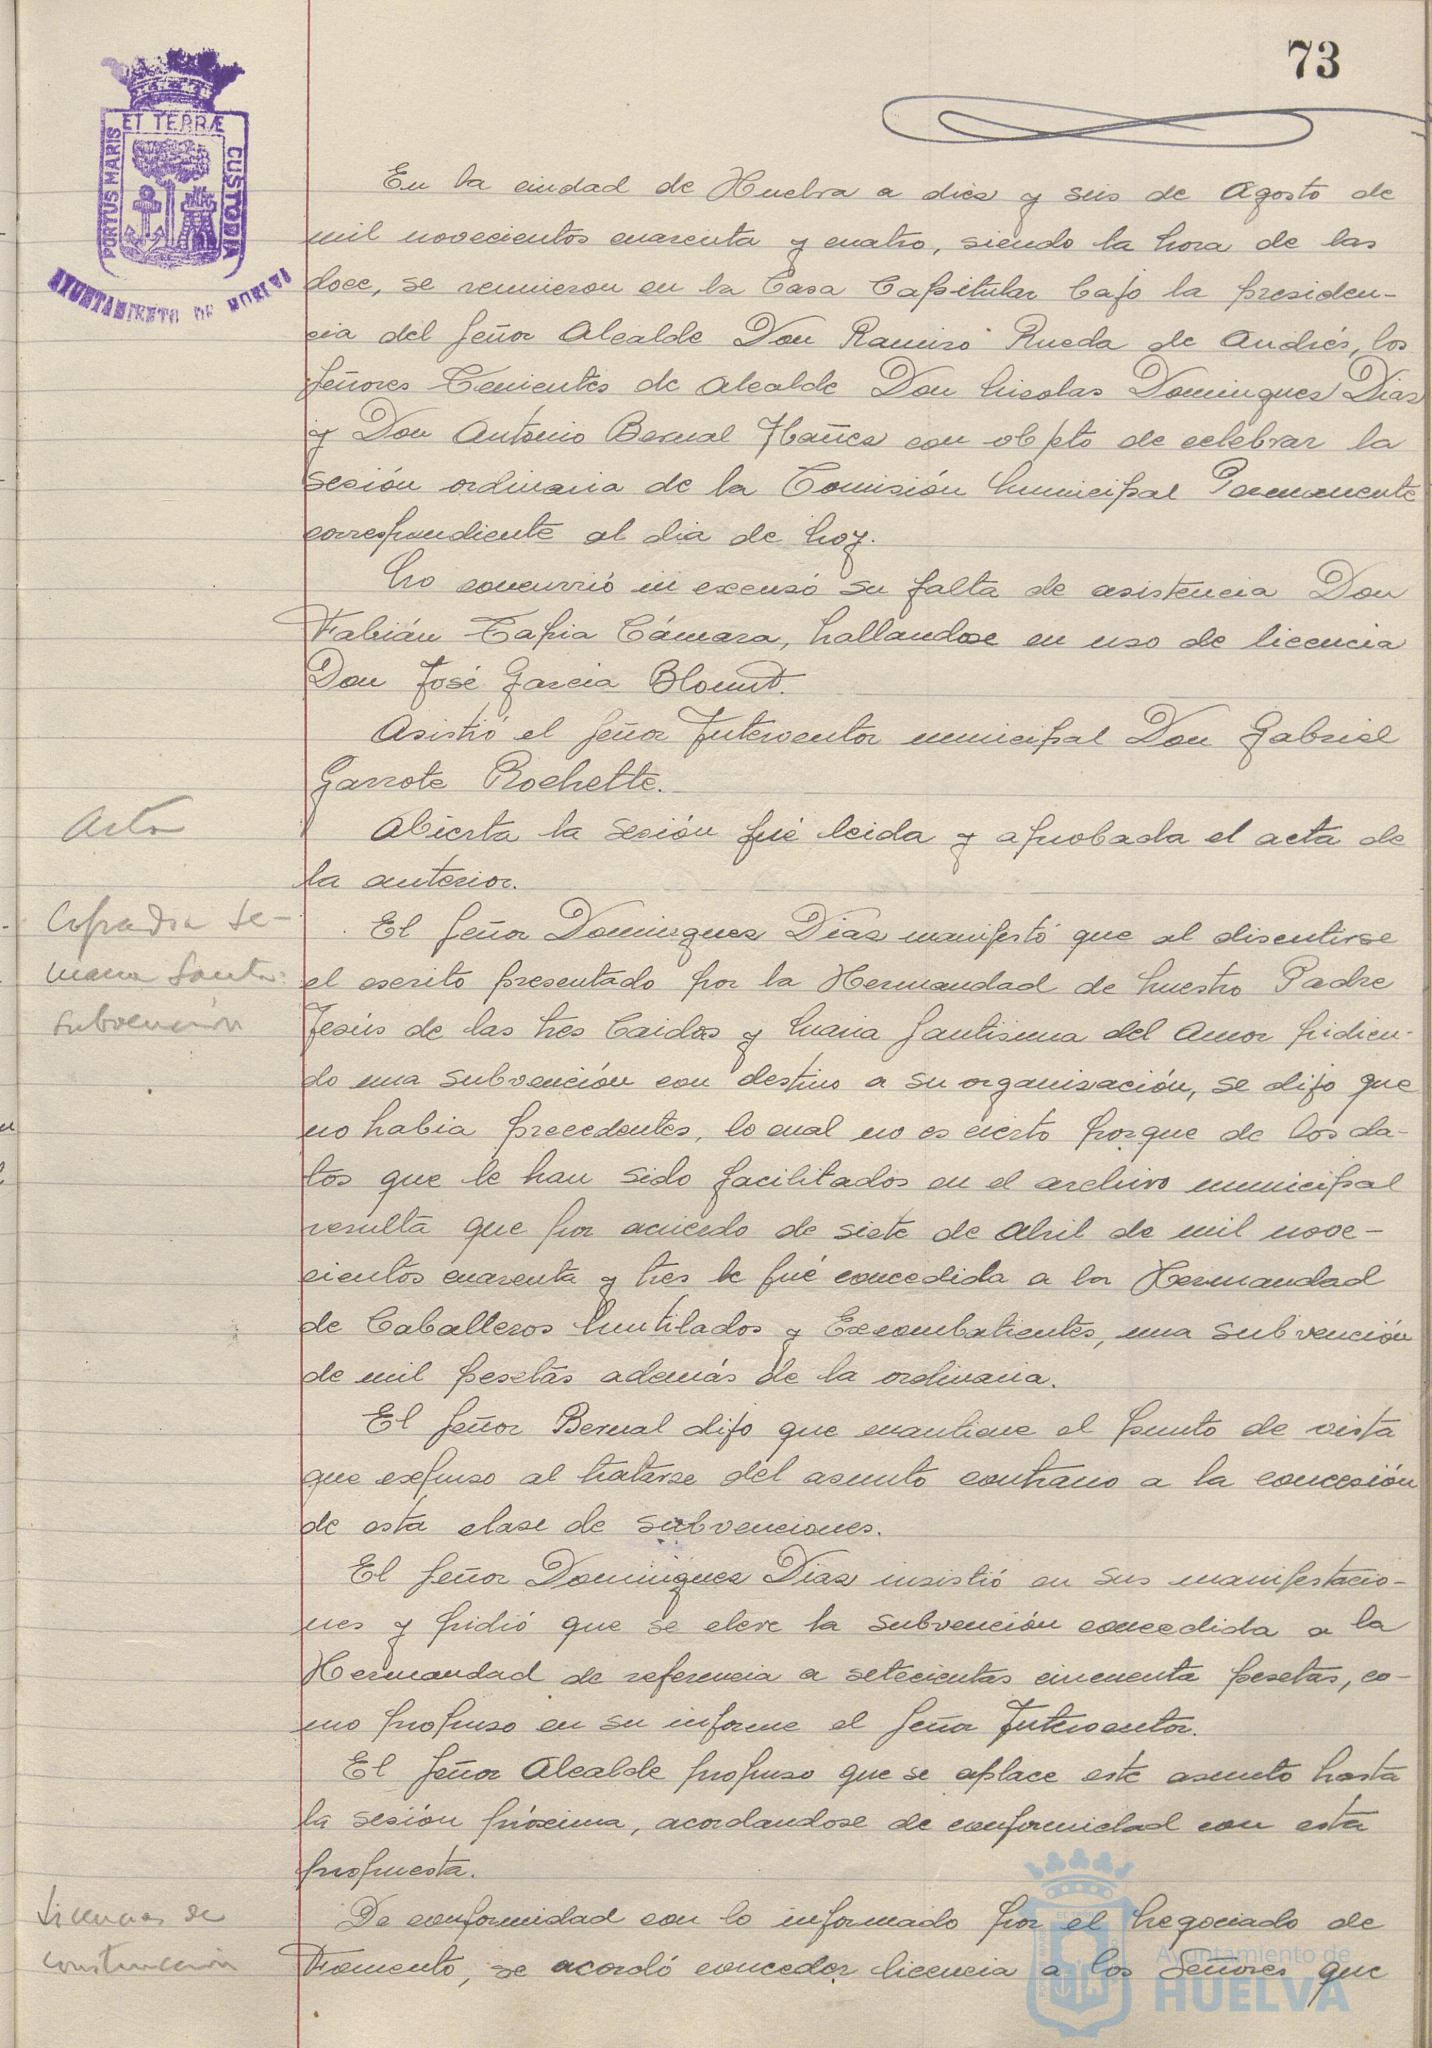 73
PORTUS MARIS ET TERRÆ CUSTODIA
AYUNTAMIENTO DE HUELVA
En la ciudad de Huelva a diez y seis de Agosto de
mil novecientos cuarenta y cuatro, siendo la hora de las
doce, se reunieron en la Casa Capitular bajo la presiden-
cia del Señor Alcalde Don Ramiro Rueda de Andrés, los
Señores Tenientes de Alcalde Don Nicolas Dominguez Diaz
y Don Antonio Bernal Ybañez con objeto de celebrar la
sesión ordinaria de la Comisión Municipal Permanente
correspondiente al dia de hoy.
No concurrió ni excusó su falta de asistencia Don
Fabián Tapia Cámara, hallandose en uso de licencia
Don José Garcia Blount.
Asistió el Señor Interventor municipal Don Gabriel
Garrote Rochette.
Acta
Abierta la sesión fué leida y aprobada el acta de
la anterior.
Cofradia Se-
mana Santa:
subvención
El Señor Dominguez Diaz manifestó que al discutirse
el escrito presentado por la Hermandad de Nuestro Padre
Jesús de las tres Caidas y Maria Santisima del Amor pidien-
do una subvención con destino a su organización, se dijo que
no habia precedentes, lo cual no es cierto porque de los da-
tos que le han sido facilitados en el archivo municipal
resulta que por acuerdo de siete de Abril de mil nove-
cientos cuarenta y tres le fué concedida a la Hermandad
de Caballeros Mutilados y Excombatientes, una subvención
de mil pesetas además de la ordinaria.
El Señor Bernal dijo que mantiene el punto de vista
que expuso al tratarse del asunto contrario a la concesión
de esta clase de subvenciones.
El Señor Dominguez Diaz insistió en sus manifestacio-
nes y pidió que se eleve la subvención concedida a la
Hermandad de referencia a setecientas cincuenta pesetas, co-
mo propuso en su informe el Señor Interventor.
El Señor Alcalde propuso que se aplace este asunto hasta
la sesión próxima, acordandose de conformidad con esta
propuesta.
Licencias de
construcción
De conformidad con lo informado por el Negociado de
Fomento, se acordó conceder licencia a los Señores que
Ayuntamiento de
HUELVA